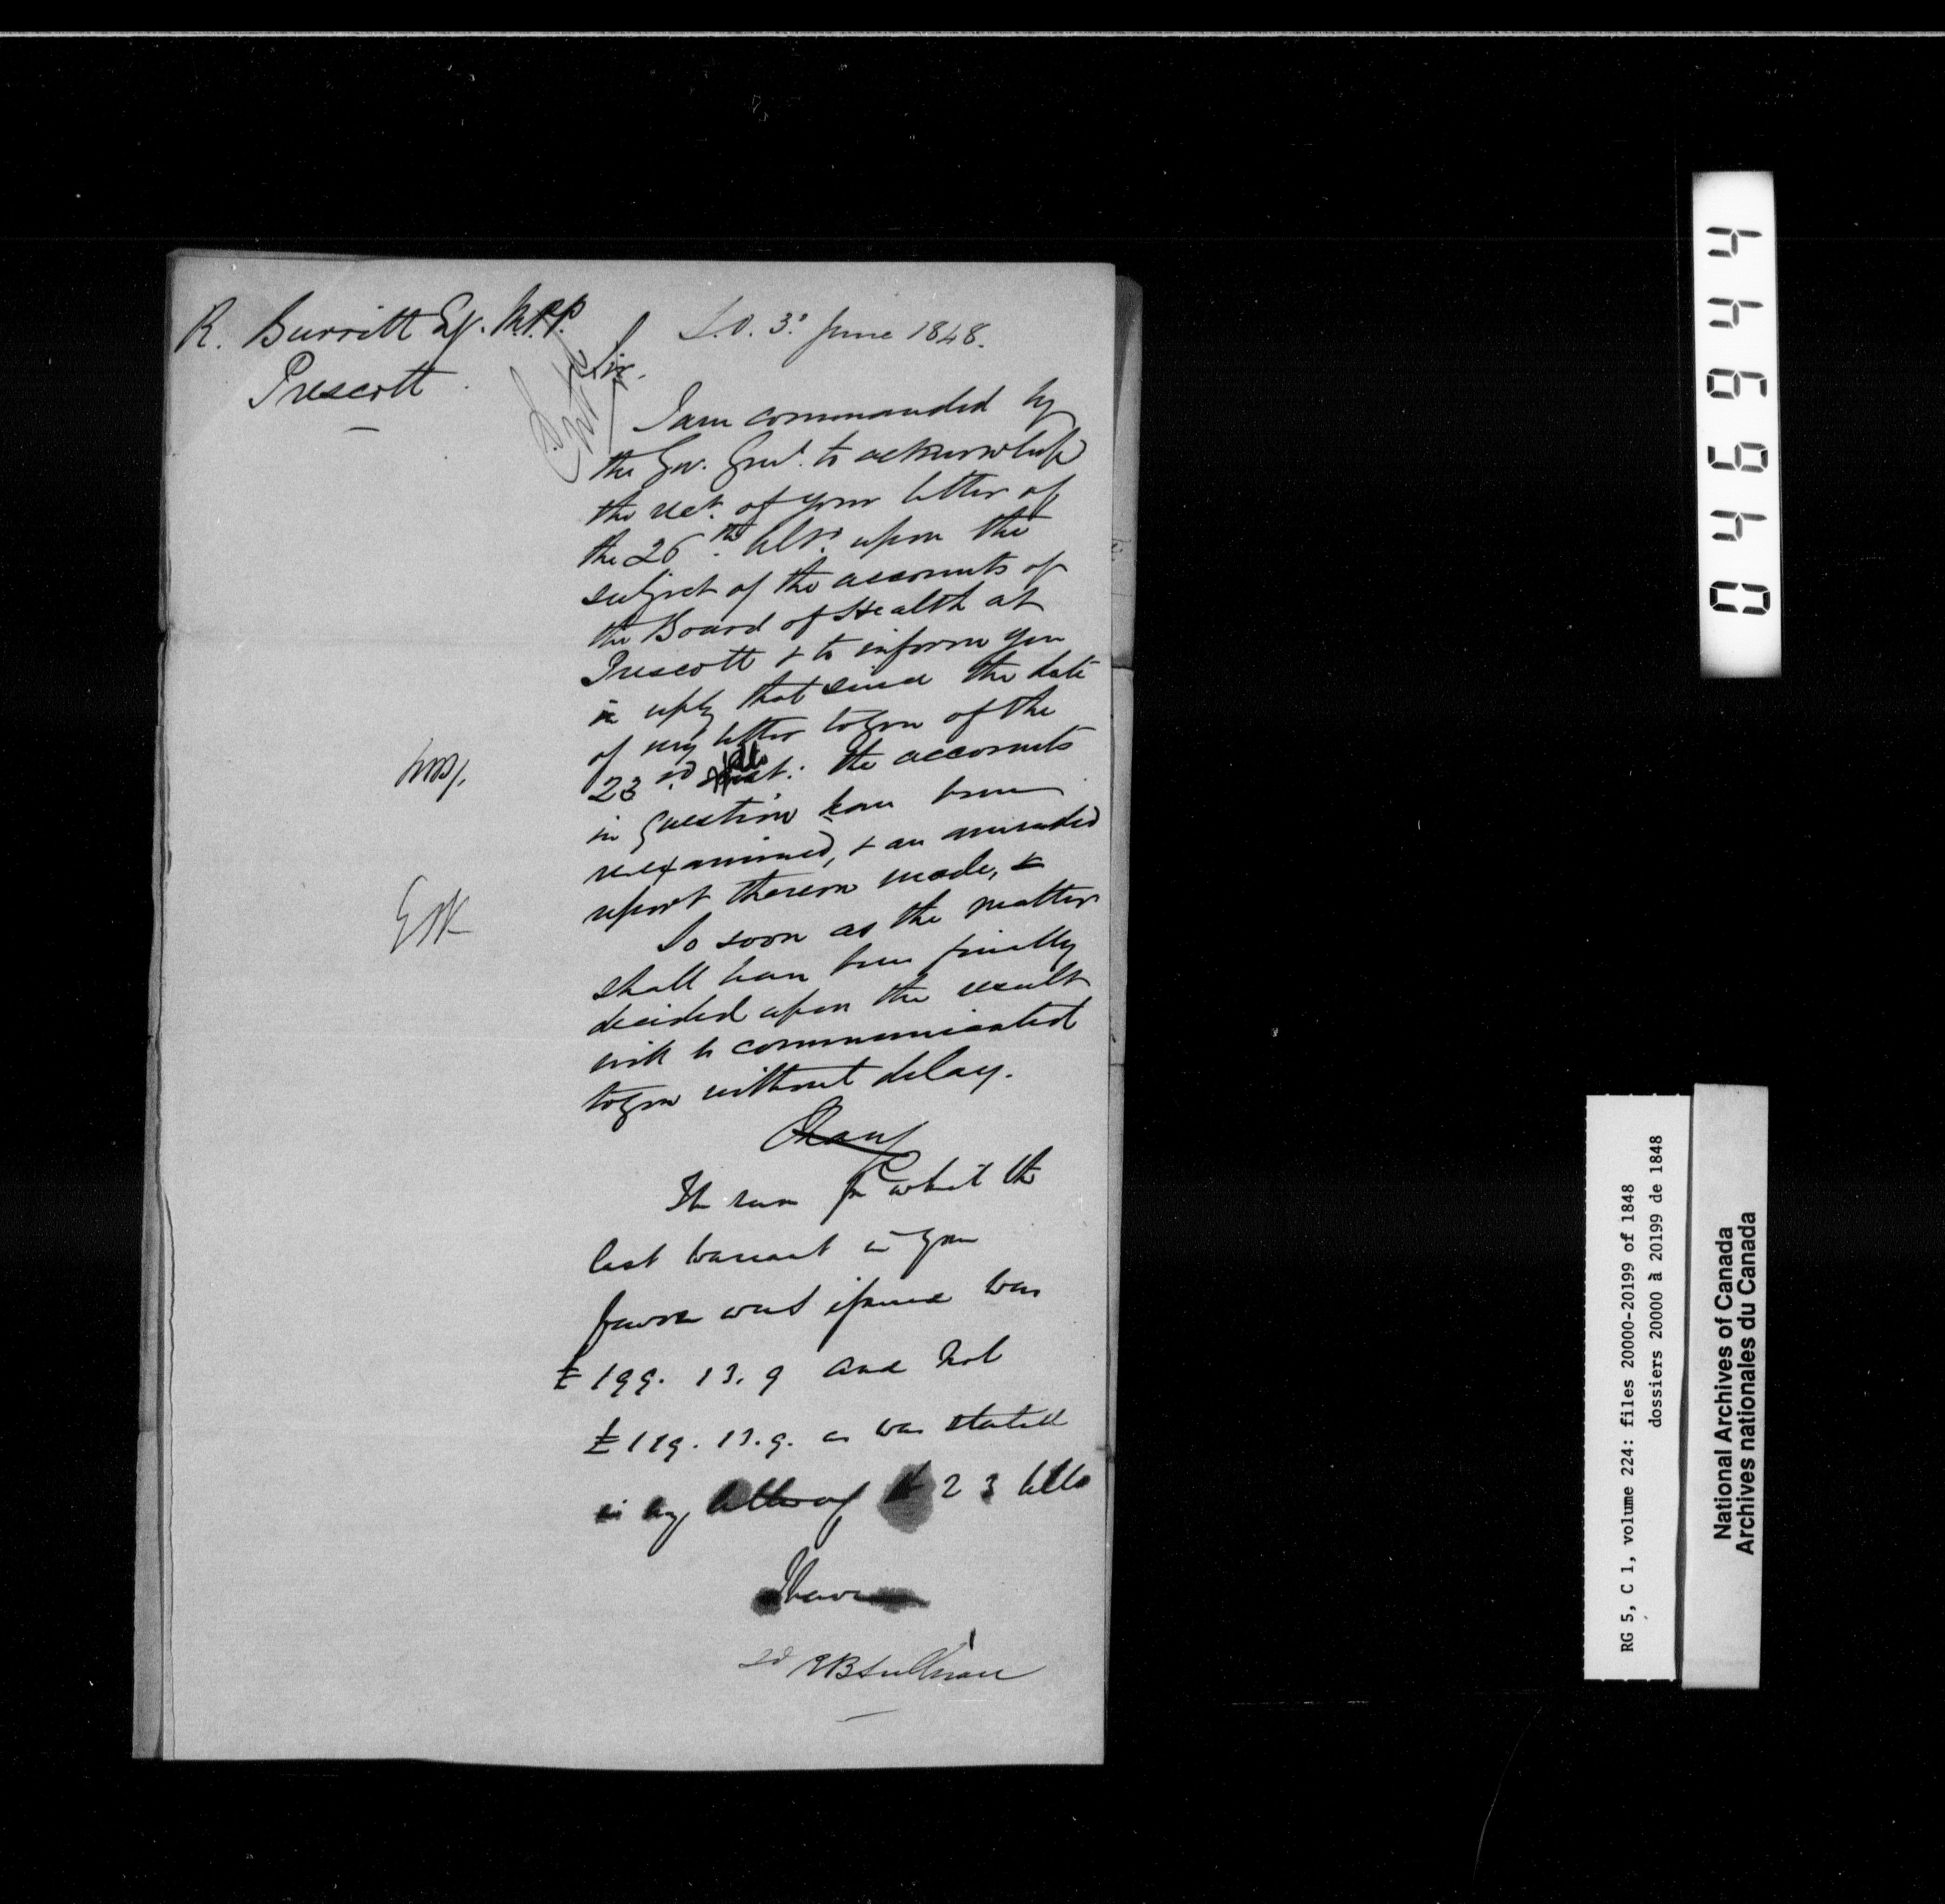 R. Burritt Esq. M.P.P.
Prescott
S.O. 3d June 1848.
Sir.
I am commanded by
the Gov. Genl. to acknowledge
the rect. of your letter of
the 26th Ulto. upon the
subject of the accounts of
the Board of Health at
Prescott & to inform you
in reply that since the date
of my letter to you of the
23rd Ulto. the accounts
in question have been
reexamined, & an amended
report thereon made, &
So soon as the matter
shall have been finally
decided upon the result
will be communicated
to you without delay.
The sum for which the
last warrant in your
favor was issued was
£199. 13. 9 and not
£119. 13. 9. as was stated
in my letter of 23 Ulto
I have
Sd RB Sullivan
044694​4
RG 5, C 1, volume 224: files 20000-20199 of 1848
dossiers 20000 à 20199 de 1848
National Archives of Canada
Archives nationales du Canada